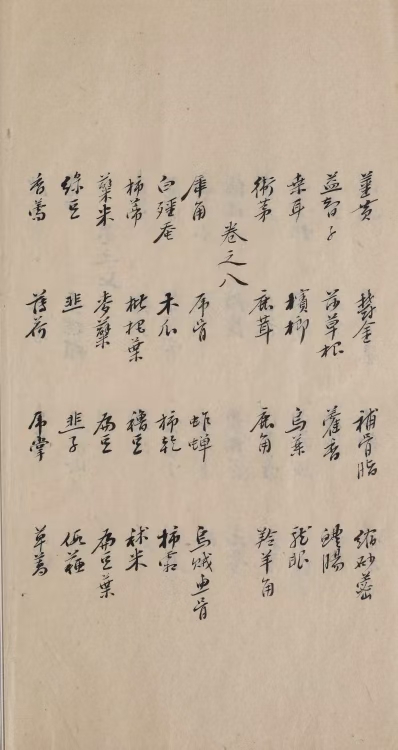 薑黄 鬱金 補骨脂 縮砂蔤
益智子 莎草根 藿香 鱧腸
枲耳 檳榔 烏藥 龍眼
衛茅 鹿茸 鹿角 羚羊角
卷之八
犀角 虎骨 蚱蟬 烏賊魚骨
白殭蚕 木瓜 柿乾 柿霜
柿蒂 枇杷葉 穭豆 秫米
蘗米 麥蘗 扁豆 扁豆葉
綠豆 韭 韭子 假蘇
香薷 薄荷 虎掌 草蒿